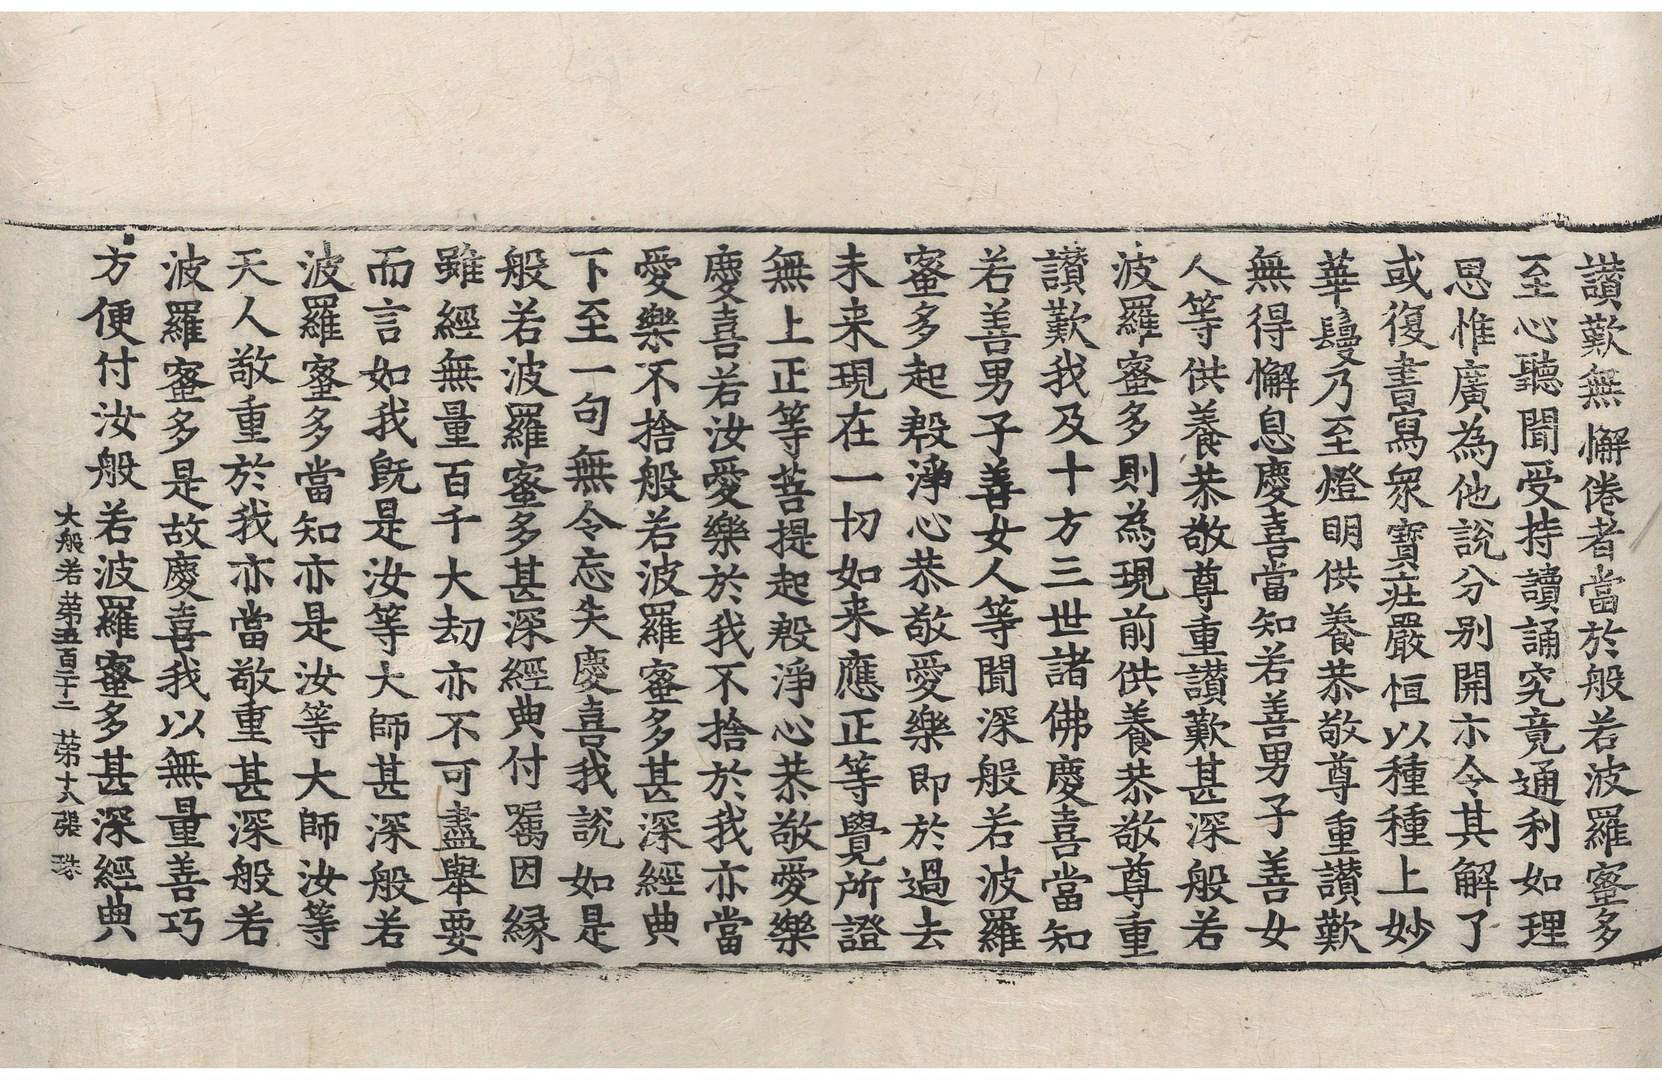 讃歎無懈倦者當於般若波羅蜜多
至心聽聞受持讀誦究竟通利如理
思惟廣為他說分別開示令其解了
或復書寫眾寶莊嚴恒以種種上妙
華鬘乃至燈明供養恭敬尊重讃歎
無得懈息慶喜當知若善男子善女
人等供養恭敬尊重讃歎甚深般若
波羅蜜多則為現前供養恭敬尊重
讃歎我及十方三世諸佛慶喜當知
若善男子善女人等聞深般若波羅
蜜多起殷淨心恭敬愛樂即於過去
未来現在一切如来應正等覺所證
無上正等菩提起殷淨心恭敬愛樂
慶喜若汝愛樂於我不捨於我亦當
愛樂不捨般若波羅蜜多甚深經典
下至一句無令忘失慶喜我說如是
般若波羅蜜多甚深經典付囑因緣
雖經無量百千大劫亦不可盡舉要
而言如我既是汝等大師甚深般若
波羅蜜多當知亦是汝等大師汝等
天人敬重於我亦當敬重甚深般若
波羅蜜多是故慶喜我以無量善巧
方便付汝般若波羅蜜多甚深經典
大般若苐五百二十二 苐十八張 珠